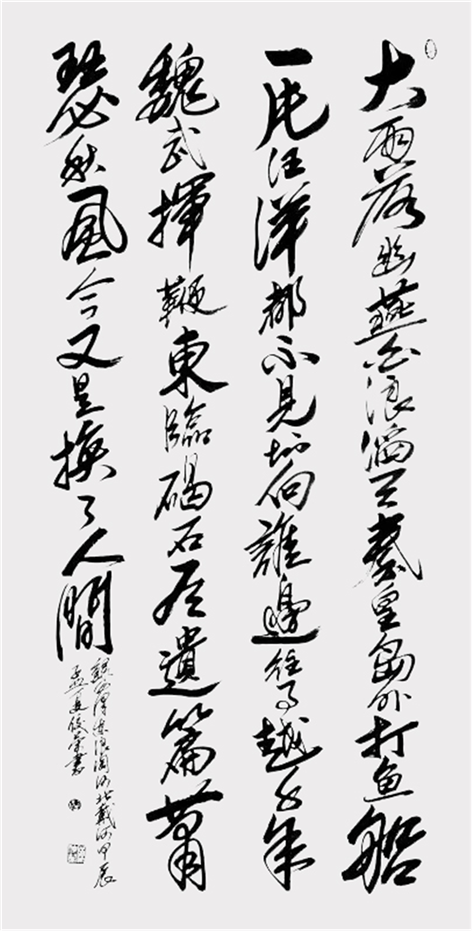 大雨落幽燕白浪滔天秦皇島外打鱼船
一片汪洋都不見知向誰邊往事越千年
魏武揮鞭東臨碣石有遺篇蕭
瑟秋風今又是換了人間
毛澤東浪淘沙北戴河甲辰
孟夏書